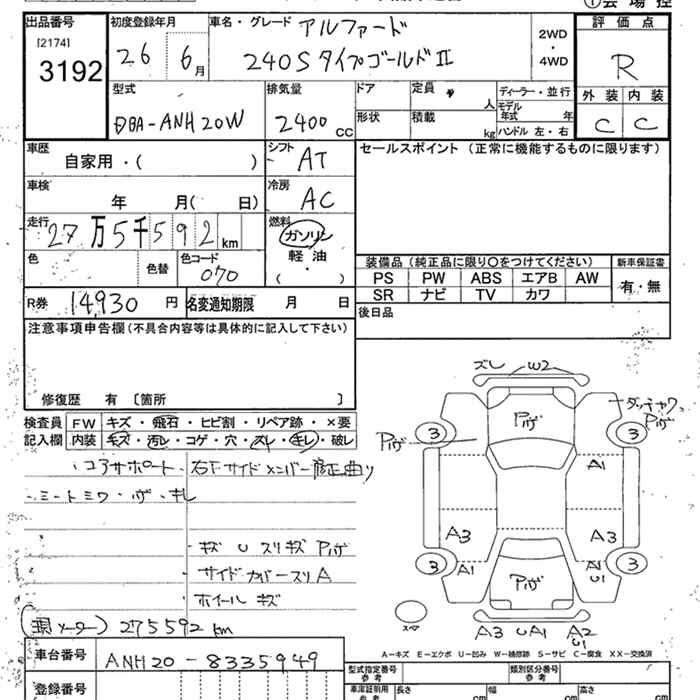 出品番号
[2174]
3192
初度登録年月
26 6月
車名・グレード アルファード
240S タイプゴールドⅡ
2WD
・
4WD
評価点
R
外装 内装
C C
型式
DBA-ANH20W
排気量
2400 cc
ドア
形状
定員 人
積載 kg
ディーラー・並行
モデル年式 年
ハンドル 左・右
車歴
自家用・( )
シフト
AT
セールスポイント(正常に機能するものに限ります)
車検
年 月( 日)
冷房
AC
走行
27万5千592km
燃料
ガソリン
軽油
( )
色
色替
色コード
070
装備品(純正品に限り○をつけてください)
新車保証書
PS PW ABS エアB AW
有・無
SR ナビ TV カワ
R券 14,930 円
名変通知期限 月 日
後日品
注意事項申告欄(不具合内容等は具体的に記入して下さい)
修復歴 有〔箇所 〕
検査員記入欄
FW キズ・飛石・ヒビ割・リペア跡・×要
内装 キズ・汚レ・コゲ・穴・スレ・キレ・破レ
・コアサポート・右Fサイドメンバー修正曲り
・シートシワ・ハゲ・キレ
・キズ U スリキズ Pハゲ
・サイドカバースリA
・ホイールキズ
(現メーター) 275592 km
ズレ W2
Pハゲ
ダッチャワ
Pハゲ
Pハゲ
3 3
A1
A3 A3
3 3
A1 A1
U1
Pハゲ
スペア
A3 UA1 A2
U1
A-キズ E-エクボ U-凹み W-補修跡 S-サビ C-腐食 XX-交換済
車台番号 ANH20-8335949
登録番号
型式指定番号
参考
類別区分番号
参考
車庫証明用
参考
長さ cm
幅 cm
高さ cm